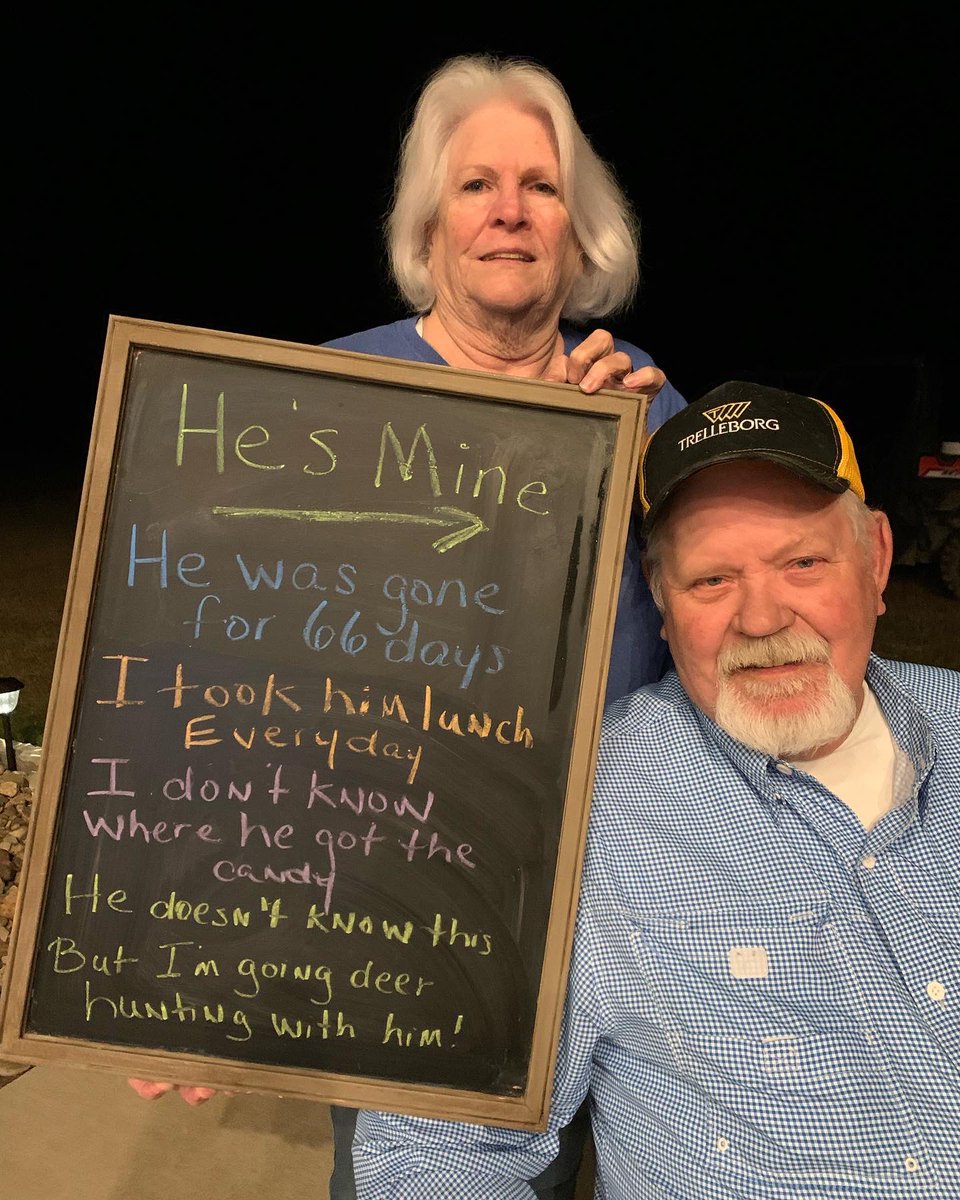 He's Mine
He was gone
for 66 days
I took him lunch
Everyday
I don't know
where he got the
candy
He doesn't know this
But I'm going deer
hunting with him!
TRELLEBORG